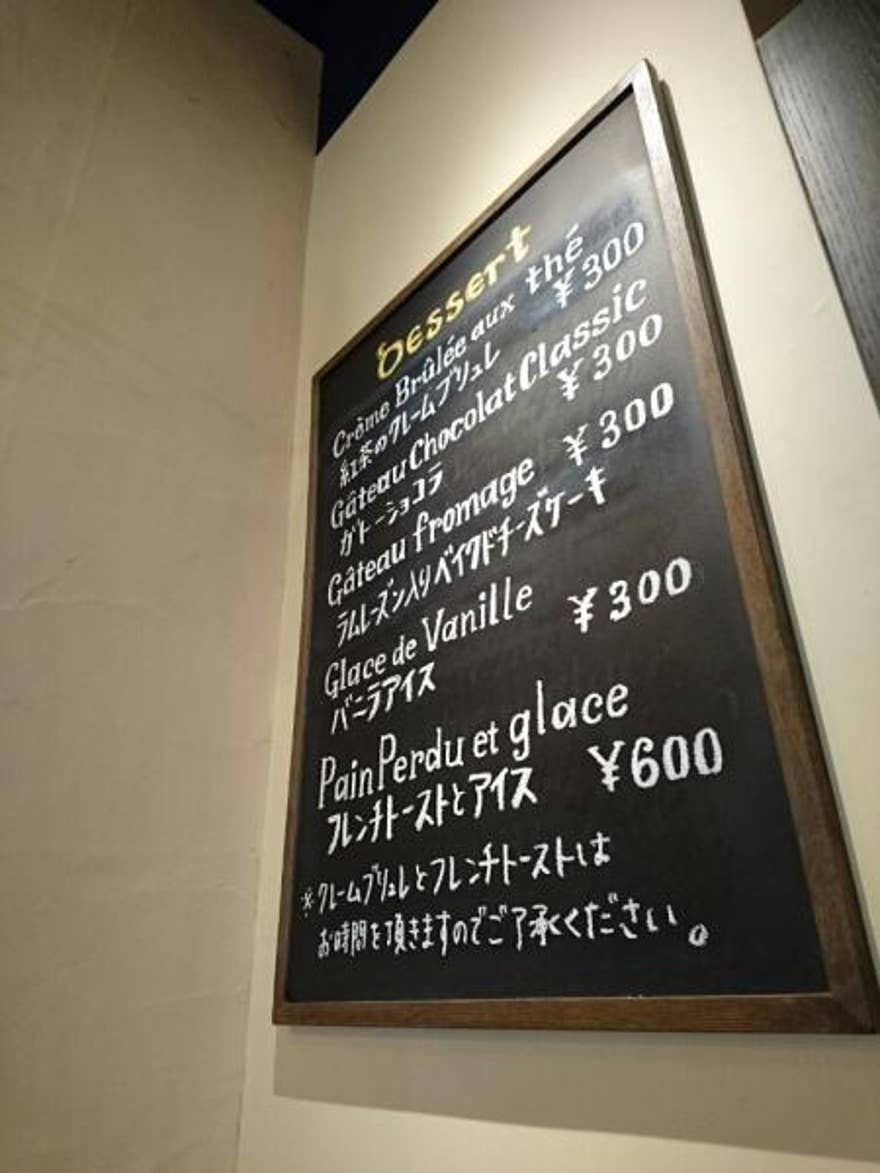 Dessert
Crème Brûlée aux thé
紅茶のクレームブリュレ ¥300
Gâteau Chocolat Classic
ガトーショコラ ¥300
Gâteau fromage ¥300
ラムレーズン入りベイクドチーズケーキ
Glace de Vanille ¥300
バニラアイス
Pain Perdu et glace
フレンチトーストとアイス ¥600
※クレームブリュレとフレンチトーストは
お時間を頂きますのでご了承ください。